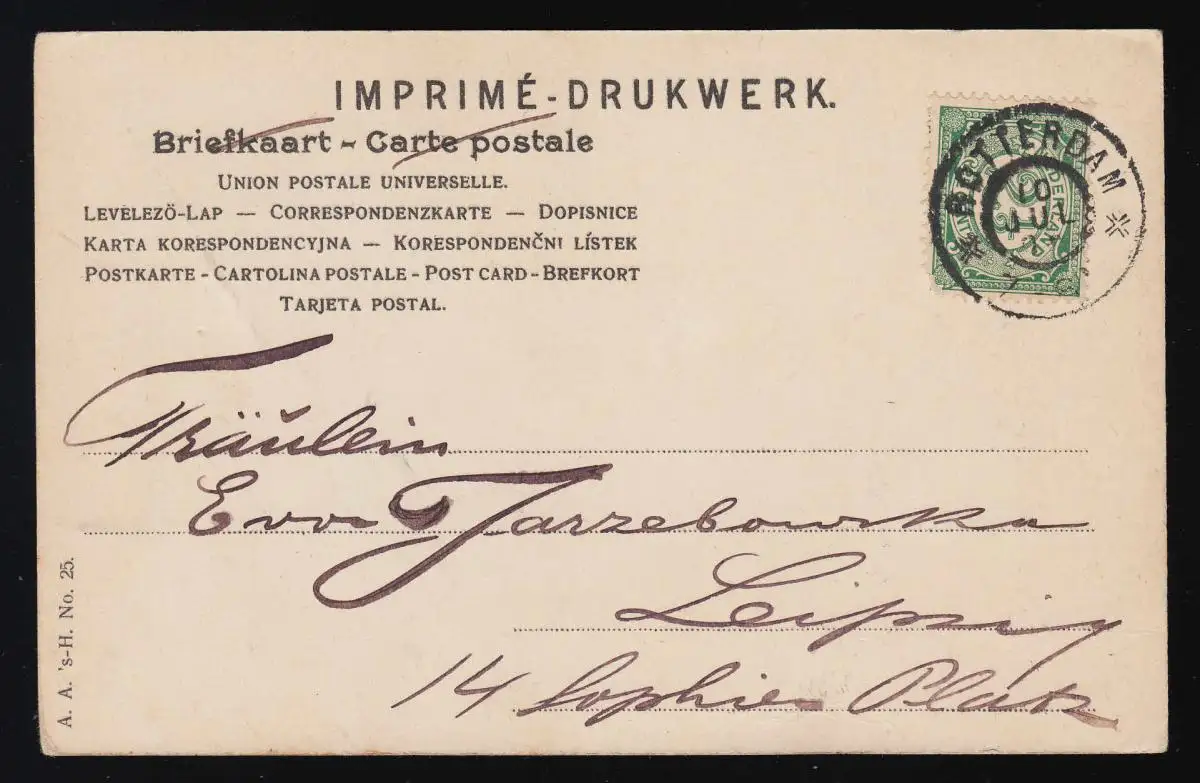 IMPRIMÉ-DRUKWERK.
Briefkaart - Carte postale
UNION POSTALE UNIVERSELLE.
LEVELEZÖ-LAP — CORRESPONDENZKARTE — DOPISNICE
KARTA KORESPONDENCYJNA — KORESPONDENČNI LÍSTEK
POSTKARTE - CARTOLINA POSTALE - POST CARD - BREFKORT
TARJETA POSTAL.
ROTTERDAM
10
JUL
2½
Fräulein
Eva Jarzebowska
Leipzig
14 Sophien Platz
A. A. 's-H. No. 25.